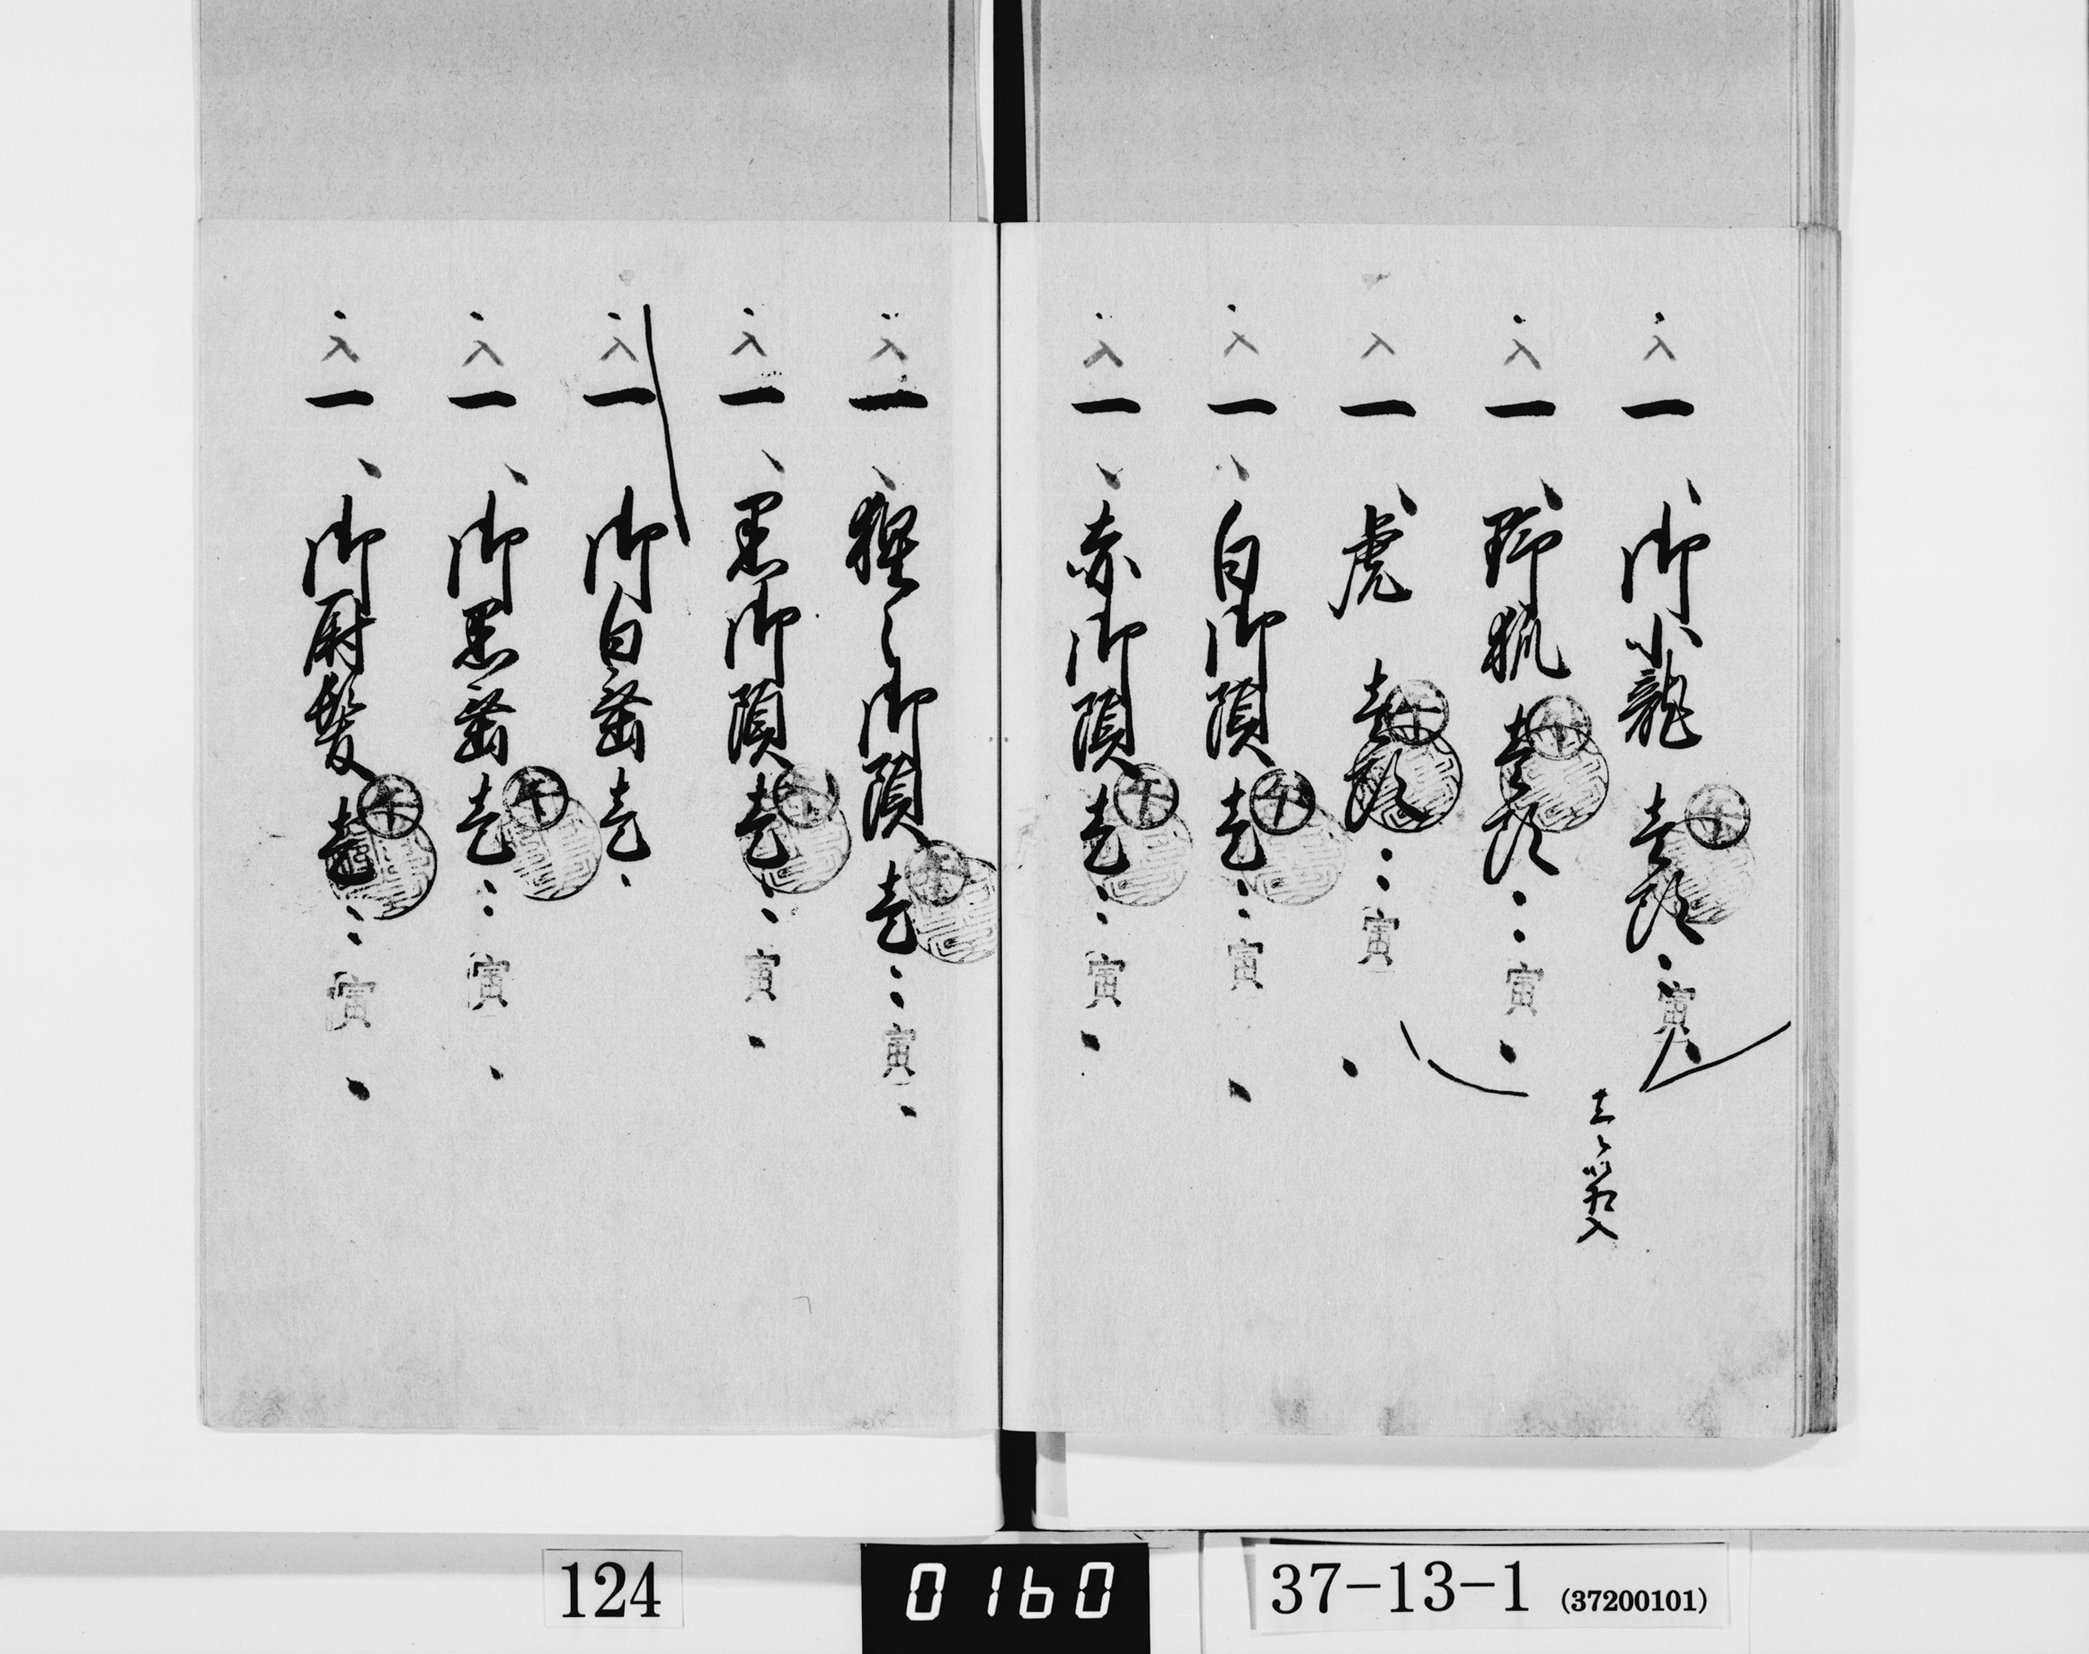 入 一 御小龍 壱頭 午 寅
入 一 野狐 壱頭 午 寅
入 一 虎 壱頭 午 寅
入 一 白御頭 壱 午 寅
入 一 赤御頭 壱 午 寅
入 一 猩々御頭 壱 午 寅
入 一 黒御頭 壱 午 寅
入 一 御白垂 壱
入 一 御黒垂 壱 午 寅
入 一 御尉髪 壱 午 寅
124
0160
37-13-1 (37200101)